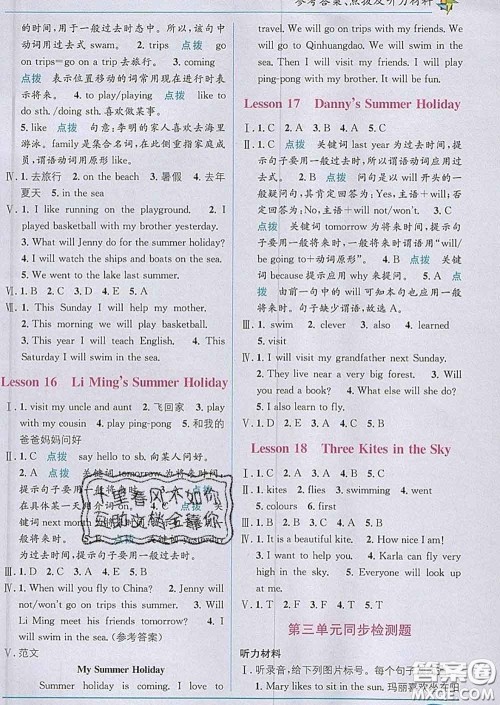 参考答案、点拨及听力材料
用一般过去时态。所以,该句中
动词用过去式 swam. 2. trips 点拨
go on trips=go on a trip 去旅行。 3. coming
点拨 表示位置移动的词常用现在进行时表
示将来。 4. to play/playing 点拨 like to
do sth. /doing sth. 喜欢做某事。
5. like 点拨 句意:李明的家人喜欢去海里
游泳。family 是集合名词,在此侧重指家庭成
员,谓语动词用原形 like.
Ⅳ. 1. 去旅行 2. on the beach 3. 暑假 4. 去年
夏天 5. in the sea
Ⅴ. 1. I like running on the playground. 2. I
played basketball with my brother yesterday.
3. What will Jenny do for the summer holiday?
4. I will watch the ships and boats on the sea.
5. We went to the lake last summer.
Ⅵ. 1. B 2. D 3. E 4. A 5. C
Ⅶ. 1. This Sunday I will help my mother.
2. This morning we will play basketball.
3. This year I will teach English. 4. This
Saturday I will swim in the sea.
Lesson 16 Li Ming's Summer Holiday
Ⅰ. 1. visit my uncle and aunt 2. 飞回家 3. play
with my cousin 4. play ping-pong 5. 和我的
爸爸妈妈问好
Ⅱ. 1. C 点拨 say hello to sb. 向某人问好。
2. C 点拨 关键词 tomorrow 为将来时间,
提示句子要用一般将来时。
在具体某一天用
词 next month
5. B 点拨
为过去时间,提示句子要用一般过去时。
Ⅲ. 1. D 2. A 3. B 4. E 5. C
Ⅳ. 1. When will you fly to China? 2. Jenny
won't/will not go on trips this summer. 3. Will
Li Ming meet his friends tomorrow? 4. I
will swim in the sea. (参考答案)
Ⅴ. 范文
My Summer Holiday
Summer holiday is coming. I love to
travel. So I will go on trips with my friends. We
will go to Qinhuangdao. We will swim in the
sea. Then I will visit my friends. I will play
ping-pong with my brother. It will be fun.
Lesson 17 Danny's Summer Holiday
Ⅰ. 1. C 2. A 3. B 4. A 5. B
Ⅱ. 1. C 点拨 关键词 last year 为过去时间,提
示句子为一般过去时,所以谓语动词应用过
去式。 2. B 点拨 问句是以 will 开头的一
般疑问句,其肯定回答为:Yes,主语+will;否
定回答为:No,主语+will not/won't. 3. B
点拨 关键词 tomorrow 为将来时间,提示句
子要用一般将来时,所以谓语动词用“will/
be going to+动词原形”。 4. C 点拨 关键
词 because 提示应用 why 来提问。 5. A 点
拨 由前一句中的 will 可知本句也应用一般
将来时。句子缺少谓语,故选 A.
Ⅲ. 1. swim 2. clever 3. also 4. learned
5. visit
Ⅳ. 1. I will visit my grandfather next Sunday.
2. They live near a very big forest. 3. Can they
fly like a bird? 4. What else will she do?
5. They will go to Beijing. Will they take a bus?
Ⅴ. 1. C 2. E 3. D 4. A 5. B
Lesson 18 Three Kites in the Sky
Ⅰ. 1. C 2. A 3. B 4. A 5. A
Ⅱ. 1. kites 2. flies 3. swimming 4. went
5. colours
Ⅲ. 1. C 2. B 3. A 4. B 5. C
Ⅳ. 1. It is a beautiful kite. 2. How nice I am!
3. I want to go home. 4. Karla can fly very
high in the sky. 5. Everyone will look up
at me.
Ⅴ. 1. T 2. F 3. F 4. T 5. T
第三单元同步检测题
听力材料
Ⅰ. 听录音,给下列图片标号。每个句子
1. Mary likes to sit in the sun. 玛丽喜欢坐在阳
答案圈